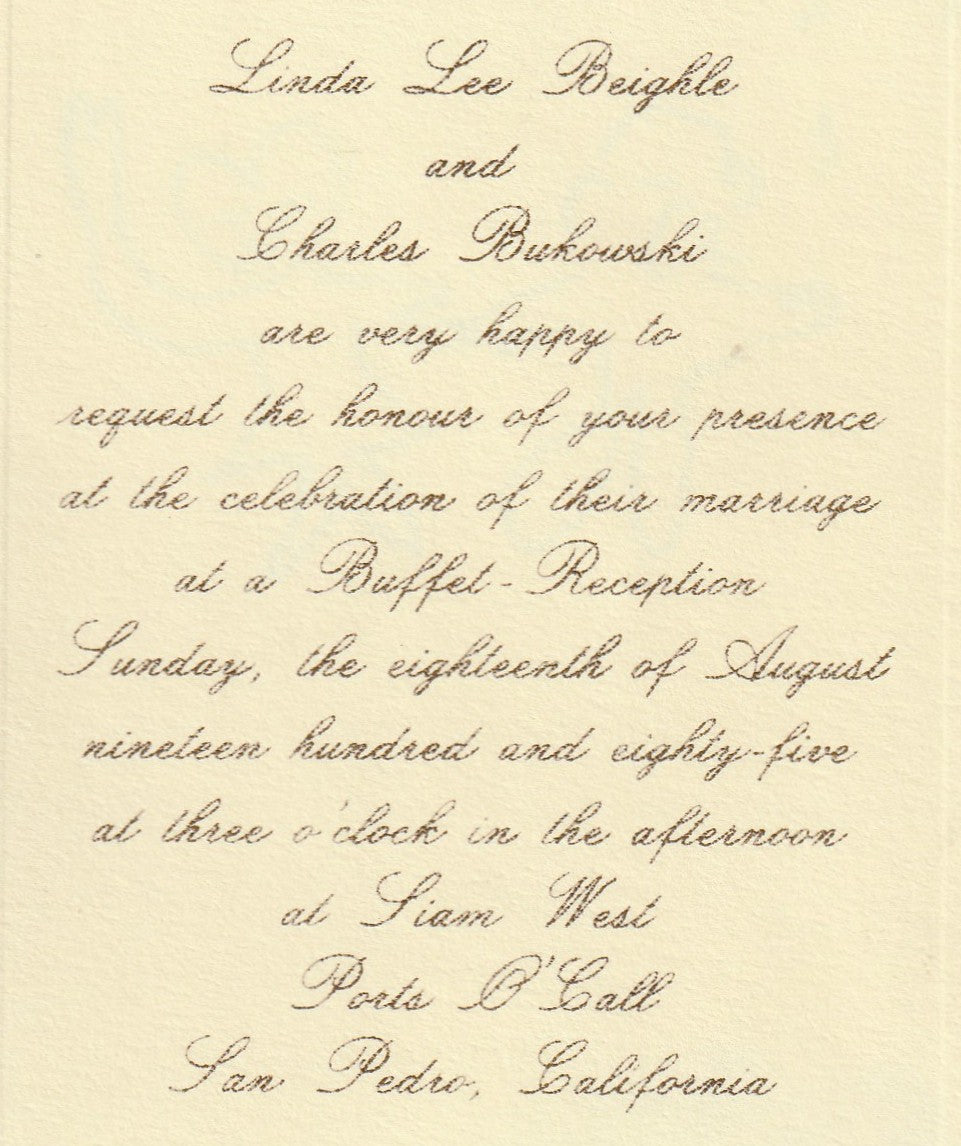 Linda Lee Beighle
and
Charles Bukowski
are very happy to
request the honour of your presence
at the celebration of their marriage
at a Buffet-Reception
Sunday, the eighteenth of August
nineteen hundred and eighty-five
at three o'clock in the afternoon
at Siam West
Ports O'Call
San Pedro, California